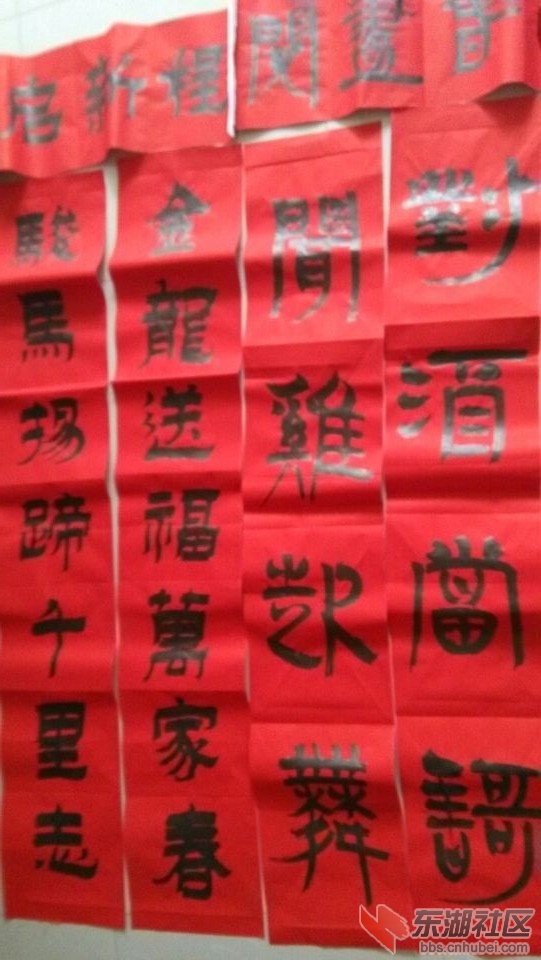 启新程
畫
對酒當謌
聞雞起舞
金龍送福萬家春
駿馬揚蹄千里志
东湖社区
bbs.cnhubei.com